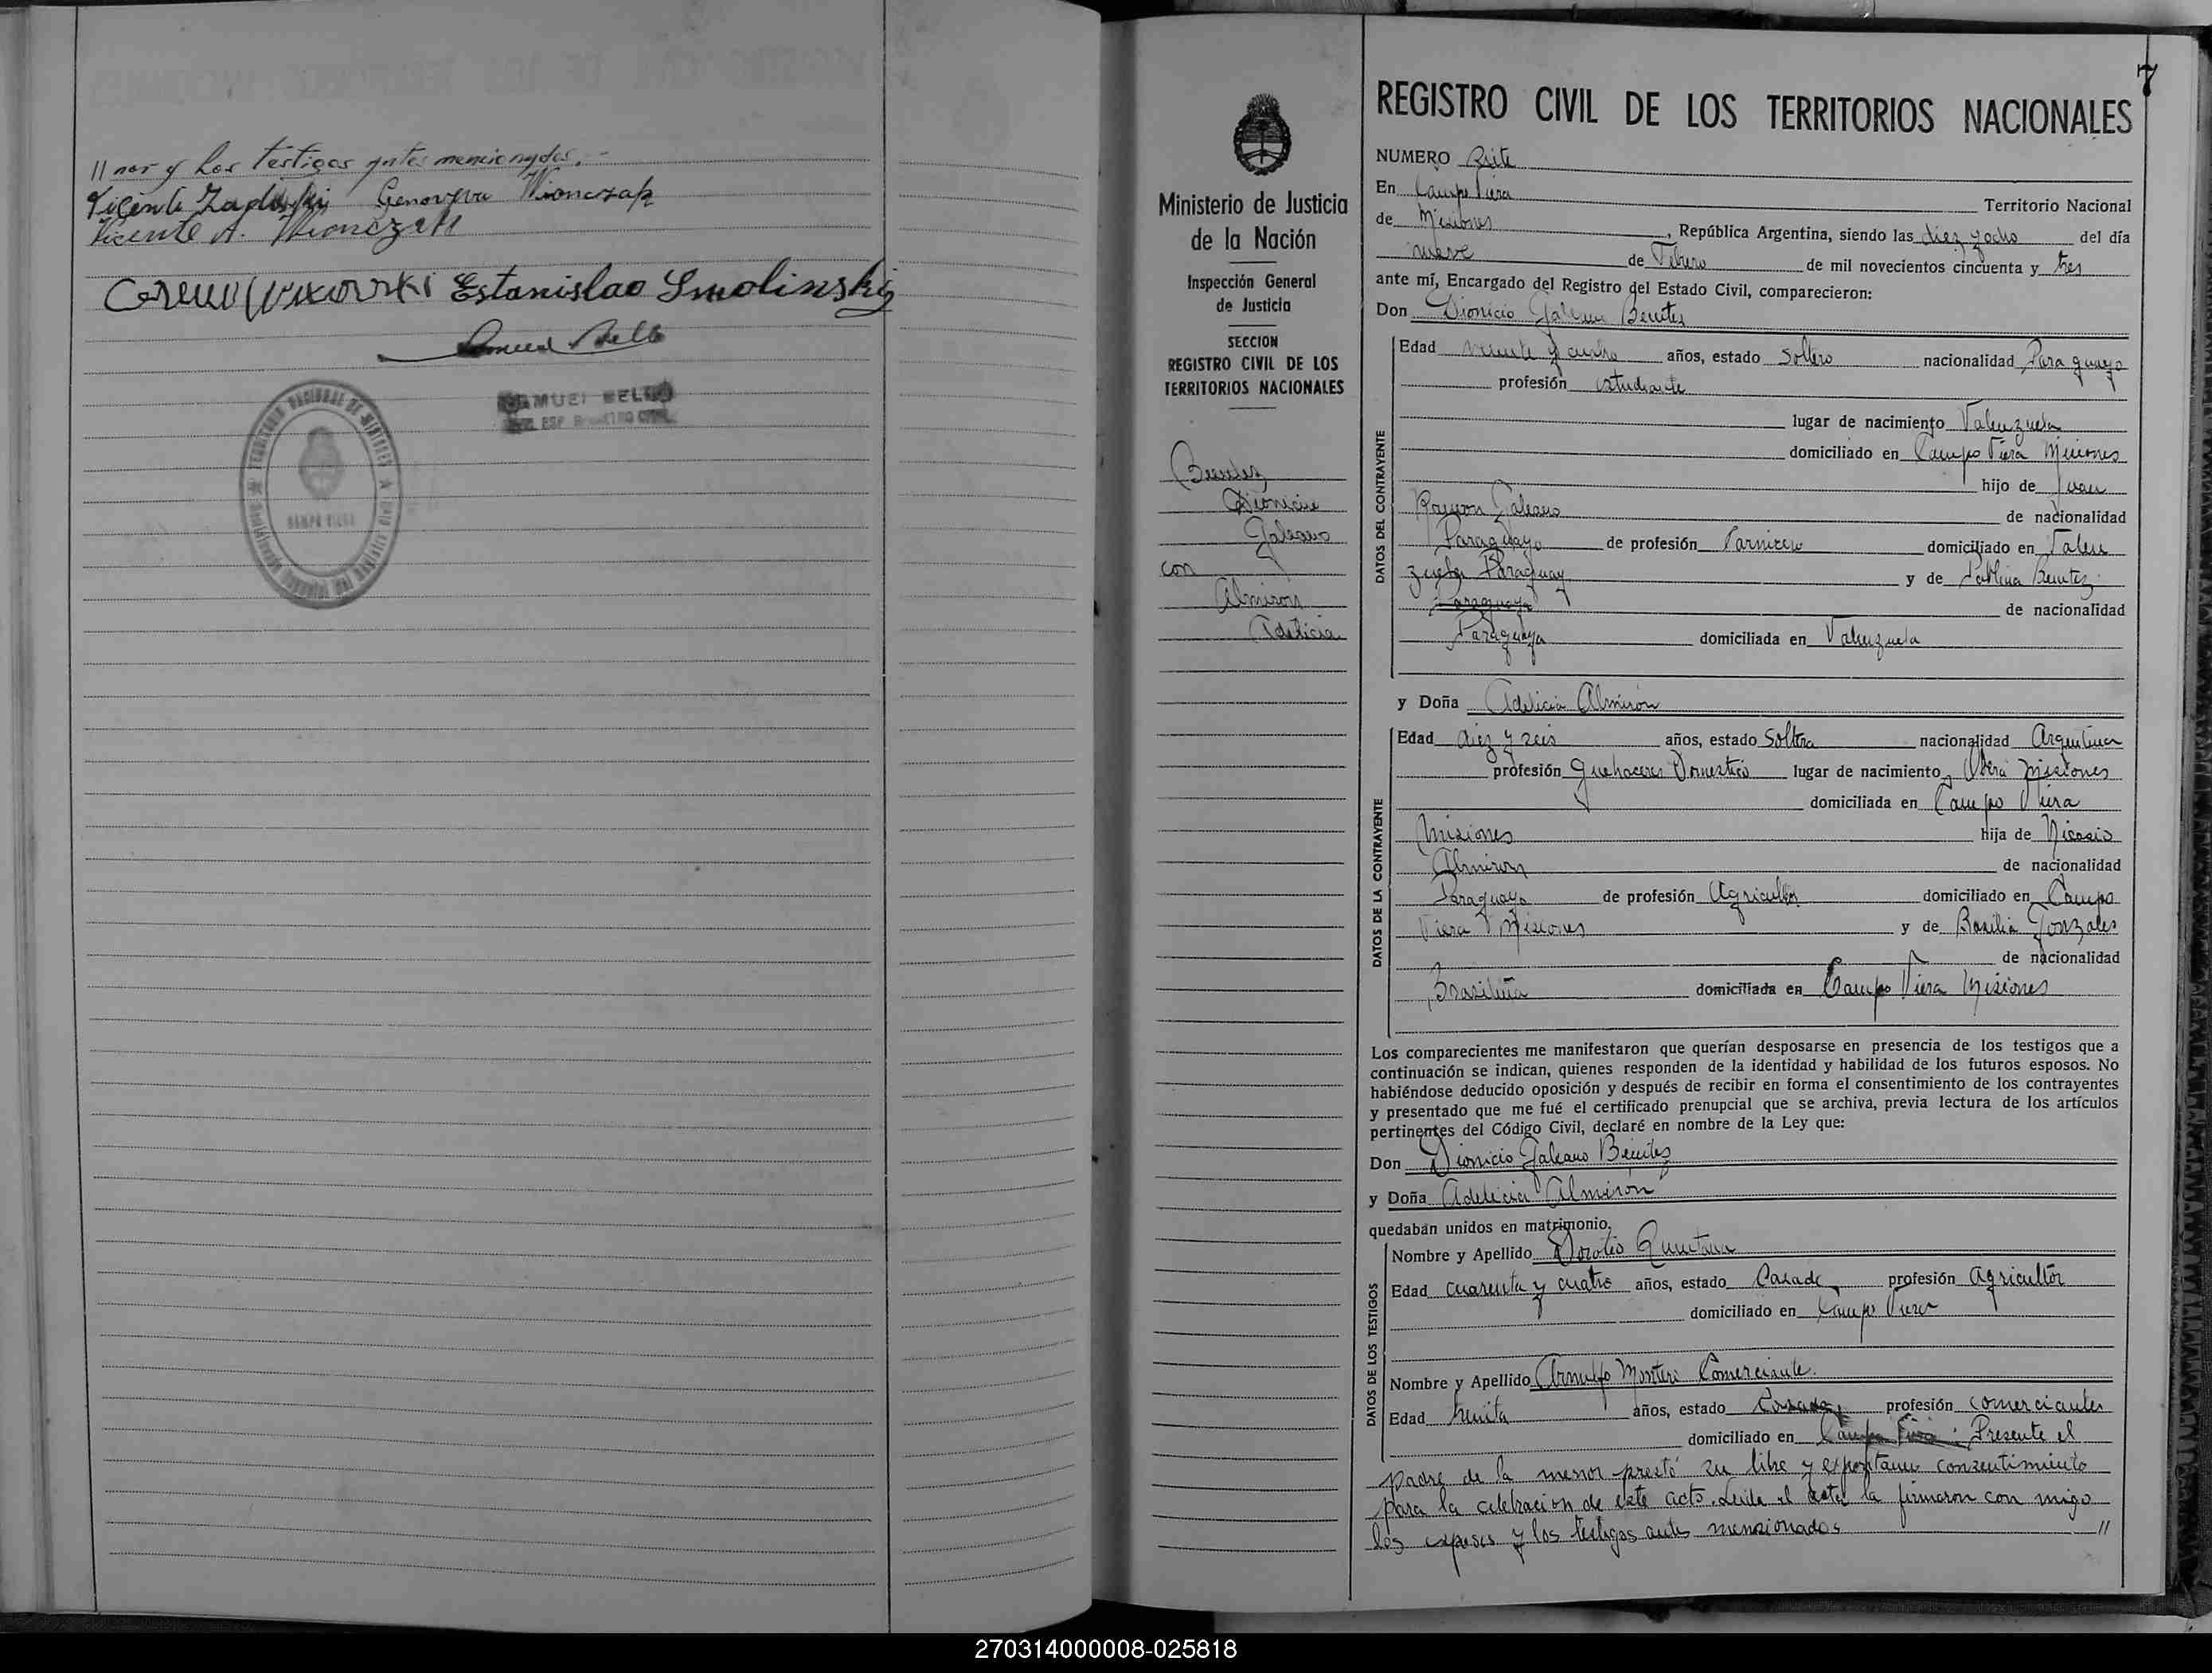 // nor y los testigos antes mencionados.-
Genoveva Wionczak
Vicente A. Wionczak
Estanislao Smolinski
SAMUEL BELLO
CAMPO VIERA
7
REGISTRO CIVIL DE LOS TERRITORIOS NACIONALES
Ministerio de Justicia
de la Nación
Inspección General
de Justicia
SECCION
REGISTRO CIVIL DE LOS
TERRITORIOS NACIONALES
Benitez
Dionicio
Galeano
con
Almirón
Adelicia
NUMERO Siete
En Campo Viera Territorio Nacional
de Misiones, República Argentina, siendo las diez y ocho del día
nueve de Febrero de mil novecientos cincuenta y tres
ante mí, Encargado del Registro del Estado Civil, comparecieron:
Don Dionicio Galeano Benites
DATOS DEL CONTRAYENTE
Edad veinte y cuatro años, estado Soltero nacionalidad Paraguayo
profesión estudiante
lugar de nacimiento Valenzuela
domiciliado en Campo Viera Misiones
hijo de Juan
Ramon Galeano de nacionalidad
Paraguayo de profesión Carnicero domiciliado en Valen
zuela Paraguay y de Benitez
Paraguaya de nacionalidad
Paraguaya domiciliada en Valenzuela
y Doña Adelicia Almirón
DATOS DE LA CONTRAYENTE
Edad diez y seis años, estado Soltera nacionalidad Argentina
profesión Quehaceres Domestico lugar de nacimiento Oberá Misiones
domiciliada en Campo Viera
Misiones hija de Nicasio
Almiron de nacionalidad
Paraguayo de profesión Agricultor domiciliado en Campo
Viera Misiones y de Basilia Gonzales
de nacionalidad
Brasileña domiciliada en Campo Viera Misiones
Los comparecientes me manifestaron que querían desposarse en presencia de los testigos que a
continuación se indican, quienes responden de la identidad y habilidad de los futuros esposos. No
habiéndose deducido oposición y después de recibir en forma el consentimiento de los contrayentes
y presentado que me fué el certificado prenupcial que se archiva, previa lectura de los artículos
pertinentes del Código Civil, declaré en nombre de la Ley que:
Don Dionicio Galeano Benites
y Doña Adelicia Almirón
quedaban unidos en matrimonio.
DATOS DE LOS TESTIGOS
Nombre y Apellido Doroteo Quintana
Edad cuarenta y cuatro años, estado Casado profesión agricultor
domiciliado en Campo Viera
Nombre y Apellido Arnulfo Montero Comerciante.
Edad treinta años, estado Casado profesión comerciante
domiciliado en Campo Viera. Presente el
padre de la menor prestó su libre y expontaneo consentimiento
para la celebracion de este acto. Leida el acta la firmaron con migo
los esposos y los testigos antes mensionados //
270314000008-025818